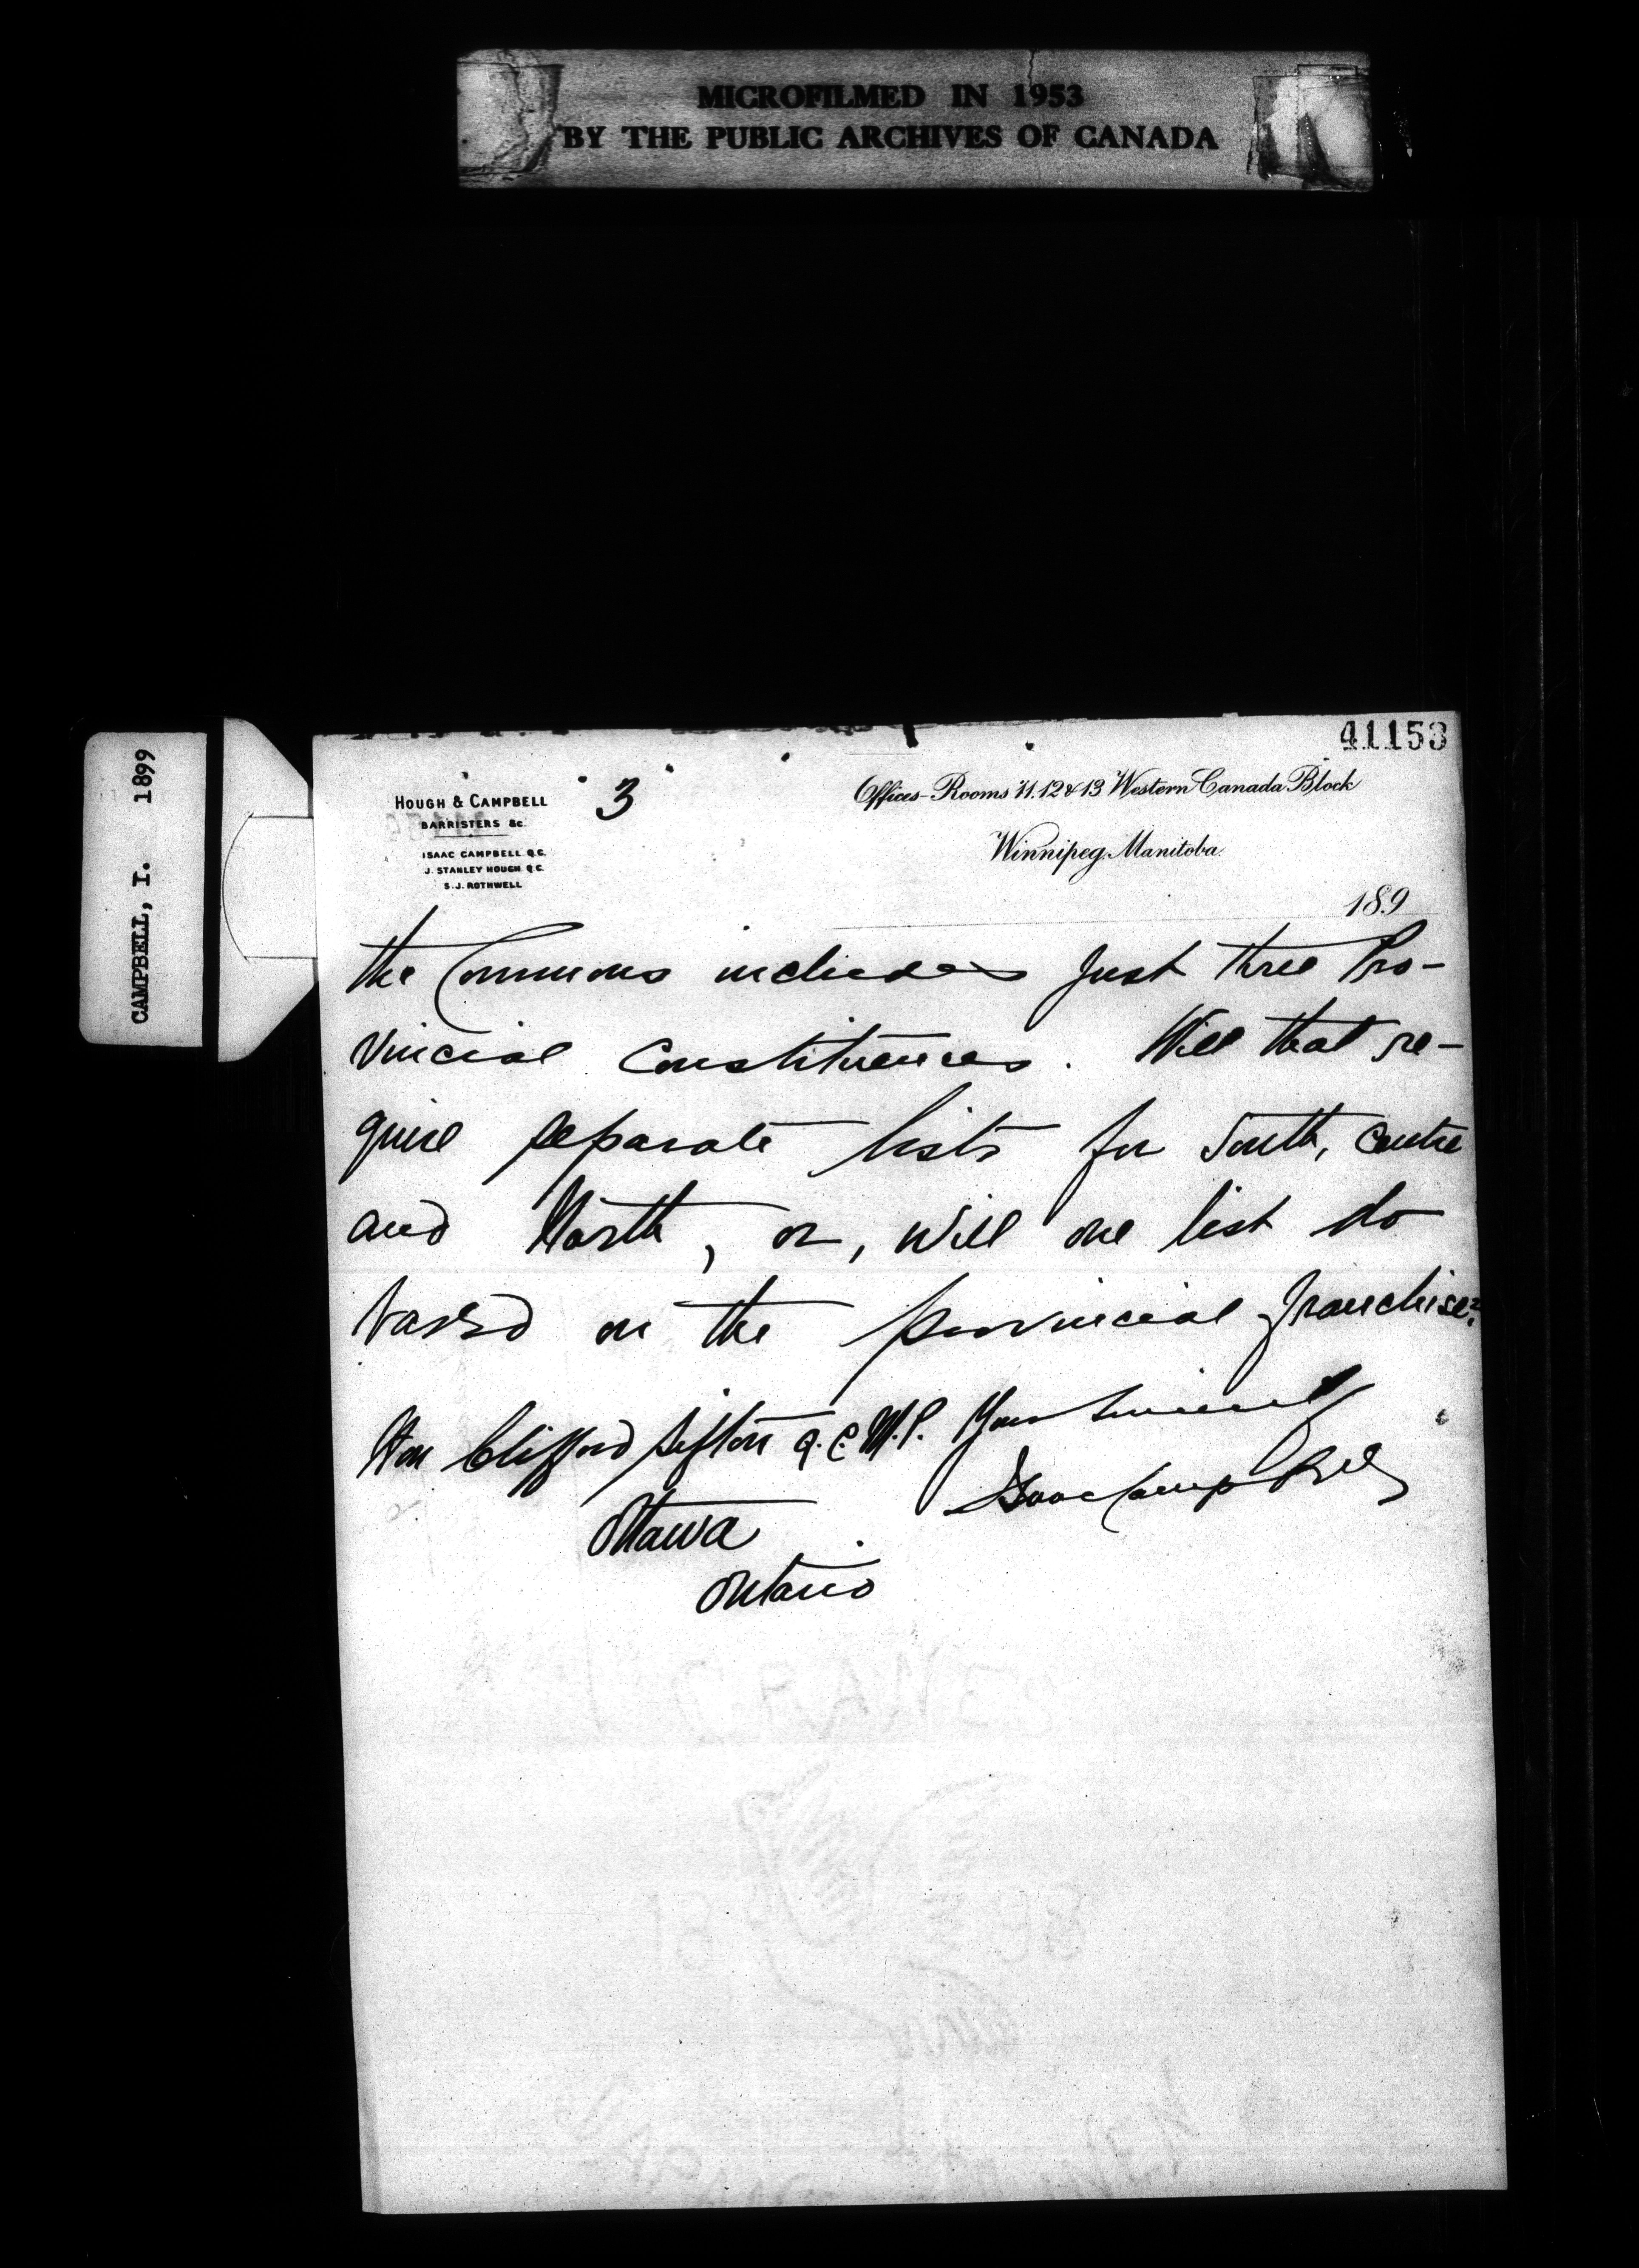 MICROFILMED IN 1953
BY THE PUBLIC ARCHIVES OF CANADA
CAMPBELL, I. 1899
41153
HOUGH & CAMPBELL
BARRISTERS &c.
ISAAC CAMPBELL Q.C.
J. STANLEY HOUGH Q.C.
S. J. ROTHWELL
3
Offices-Rooms 11.12 & 13 Western Canada Block
Winnipeg, Manitoba.
189
the Commons includes just three Pro-
vincial Constituences. Will that re-
quire separate lists for South, Centre
and North, or, will one list do
based on the provincial franchise?
Yours sincerely
Isaac Campbell
Hon Clifford Sifton Q.C. M.P.
Ottawa
Ontario